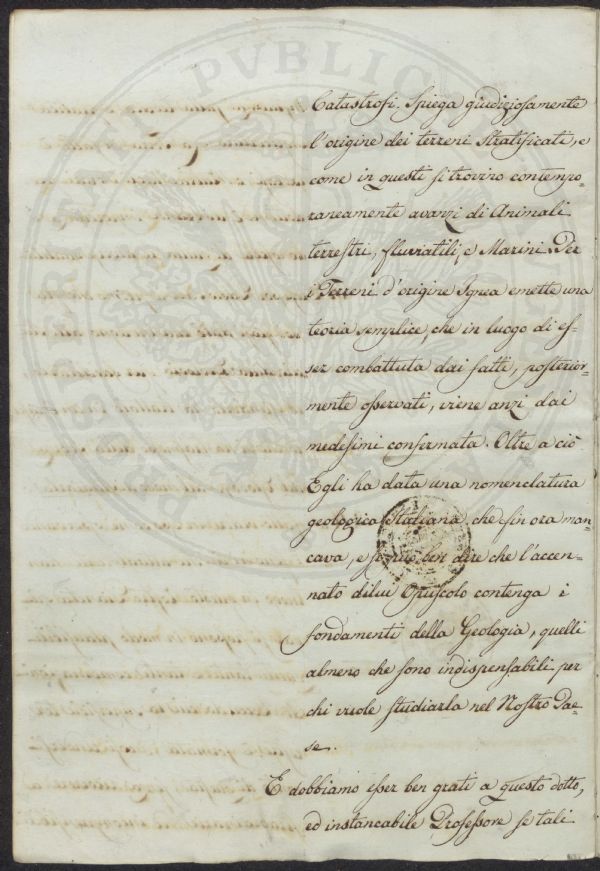 Catastrofi. Spiega giudiziosamente
l'origine dei terreni stratificati, e
come in questi si trovino contempo-
raneamente avanzi di Animali
terrestri, fluviatili, e Marini. Per
i Terreni d'origine Ignea emette una
teoria semplice, che in luogo di es-
ser combattuta dai fatti, posterior-
mente osservati, viene anzi dai
medesimi confermata. Oltre a ciò
Egli ha data una nomenclatura
geologica Italiana, che sin ora man-
cava, e ben dire che l'accen-
nato dilui Opuscolo contenga i
fondamenti della Geologia, quelli
almeno che sono indispensabili per
chi vuole studiarla nel Nostro Pae-
se.
E dobbiamo esser ben grati a questo dotto,
ed instancabile Professore se tali